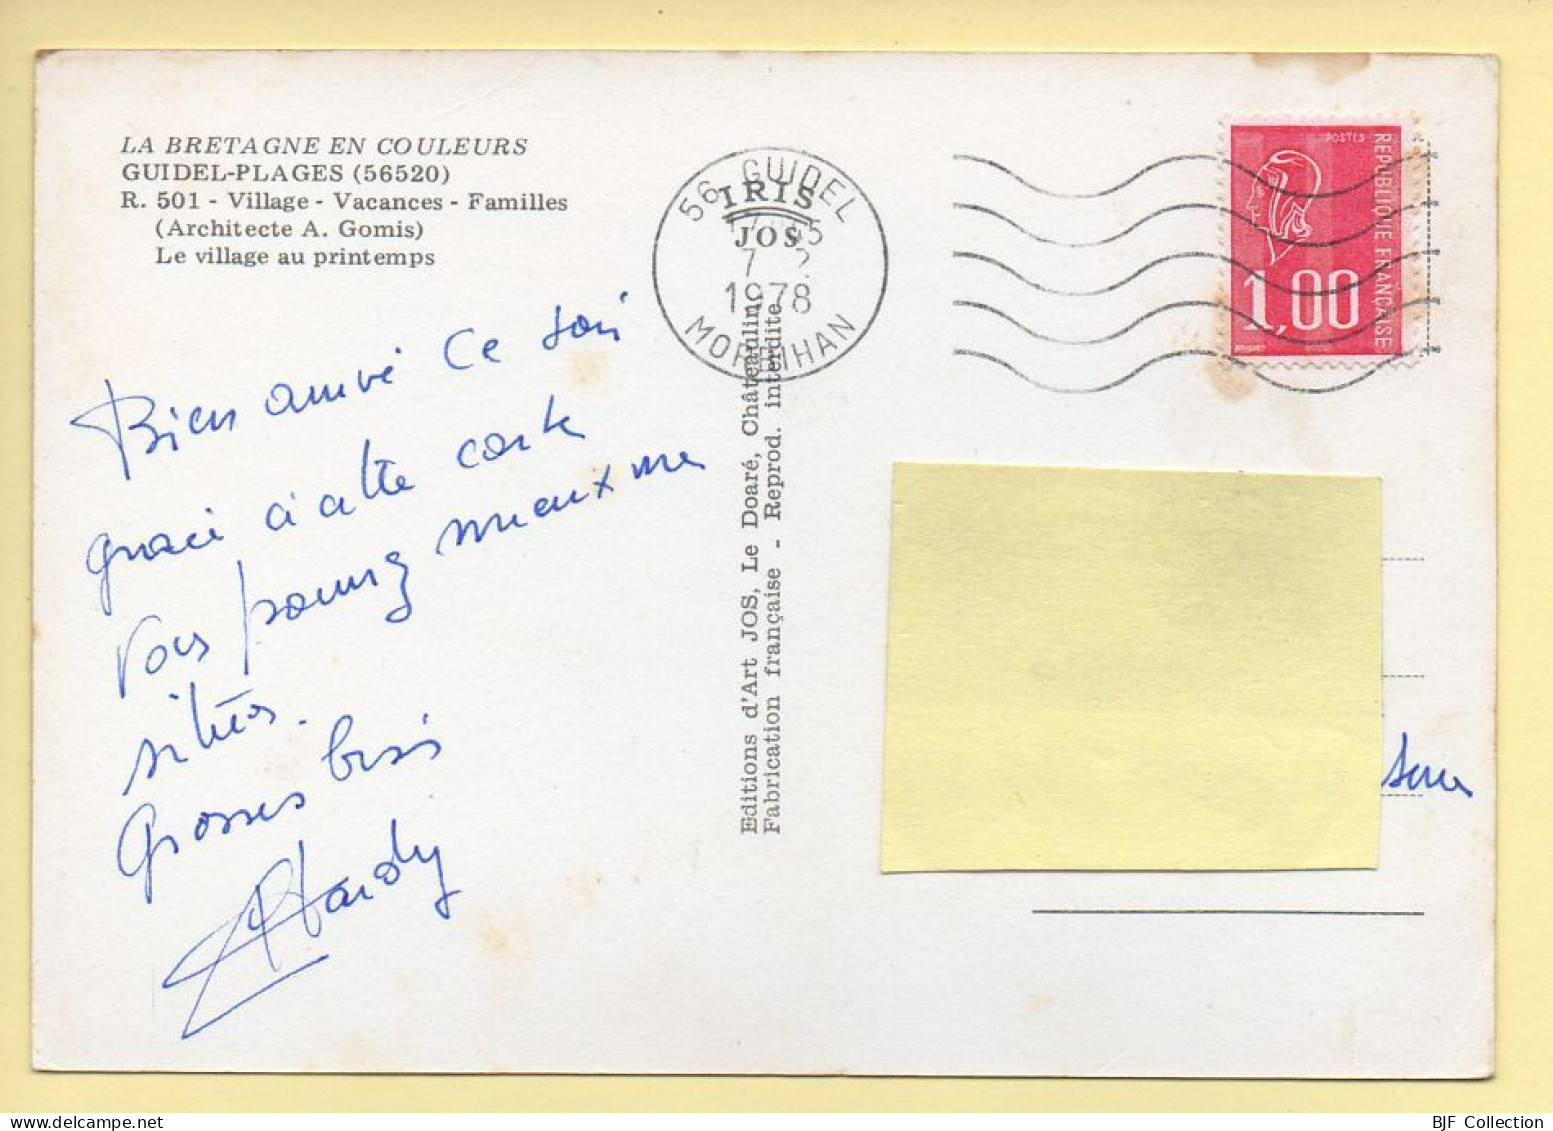 LA BRETAGNE EN COULEURS
GUIDEL-PLAGES (56520)
R. 501 - Village - Vacances - Familles
(Architecte A. Gomis)
Le village au printemps
56 GUIDEL
IRIS
JOS
7 2
1978
MORBIHAN
POSTES
REPUBLIQUE FRANÇAISE
1,00
Bien arrivé ce soir
grace à cette carte
vous pourrez mieux me
situer.
Grosses bises
Hardy
Editions d'Art JOS, Le Doaré, Châteaulin
Fabrication française - Reprod. interdite
BJF Collection